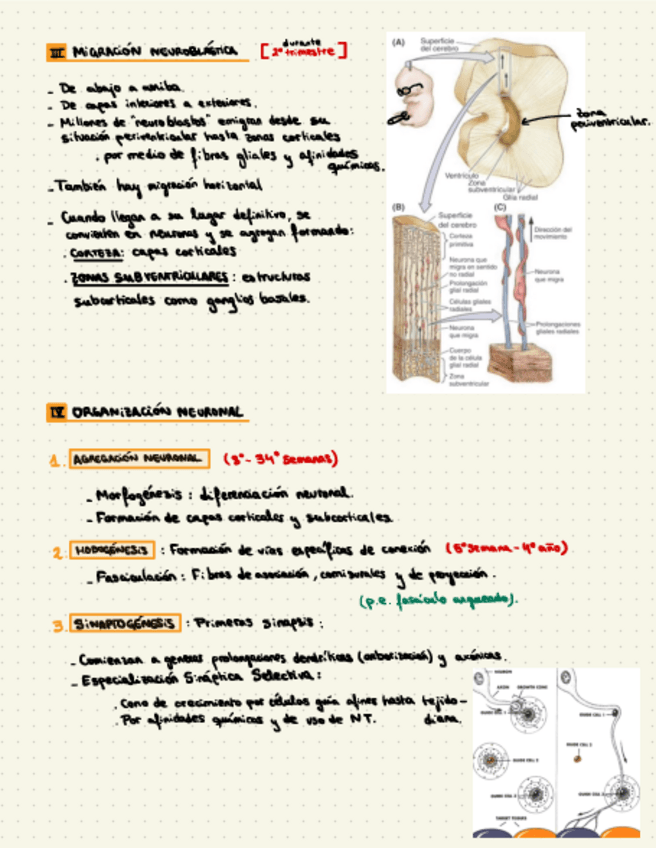 III MIGRACIÓN NEUROBLÁSTICA [durante 2º trimestre]
- De abajo a arriba.
- De capas interiores a exteriores.
- Millones de "neuroblastos" emigran desde su
situación periventricular hasta zonas corticales
. por medio de fibras gliales y afinidades
químicas.
- También hay migración horizontal
- Cuando llegan a su lugar definitivo, se
convierten en neuronas y se agregan formando:
. CORTEZA: capas corticales
. ZONAS SUBVENTRICULARES: estructuras
subcorticales como ganglios basales.
(A)
Superficie
del cerebro
zona
periventricular.
Ventrículo
Zona
subventricular
Glia radial
(B)
Superficie
del cerebro
Corteza
primitiva
Neurona que
migra en sentido
no radial
Prolongación
glial radial
Células gliales
radiales
Neurona
que migra
Cuerpo
de la célula
glial radial
Zona
subventricular
(C)
Dirección del
movimiento
Neurona
que migra
Prolongaciones
gliales radiales
IV ORGANIZACIÓN NEURONAL
1. AGREGACIÓN NEURONAL (8ª - 34ª semanas)
- Morfogénesis: diferenciación neuronal.
- Formación de capas corticales y subcorticales
2. HODOGÉNESIS: Formación de vías específicas de conexión (5ª semana - 4º año)
- Fasciculación: Fibras de asociación, comisurales y de proyección.
(p.e. fascículo arqueado).
3. SINAPTOGÉNESIS: Primeras sinapsis:
- Comienzan a generar prolongaciones dendríticas (arborización) y axónicas.
- Especialización Sináptica Selectiva:
. Cono de crecimiento por células guía afines hasta tejido-
diana.
. Por afinidades químicas y de uso de NT.
NEURON
AXON
GROWTH CONE
GUIDE CELL 1
GUIDE CELL 2
GUIDE CELL 3
TARGET TISSUE
GUIDE CELL 1
GUIDE CELL 2
GUIDE CELL 3